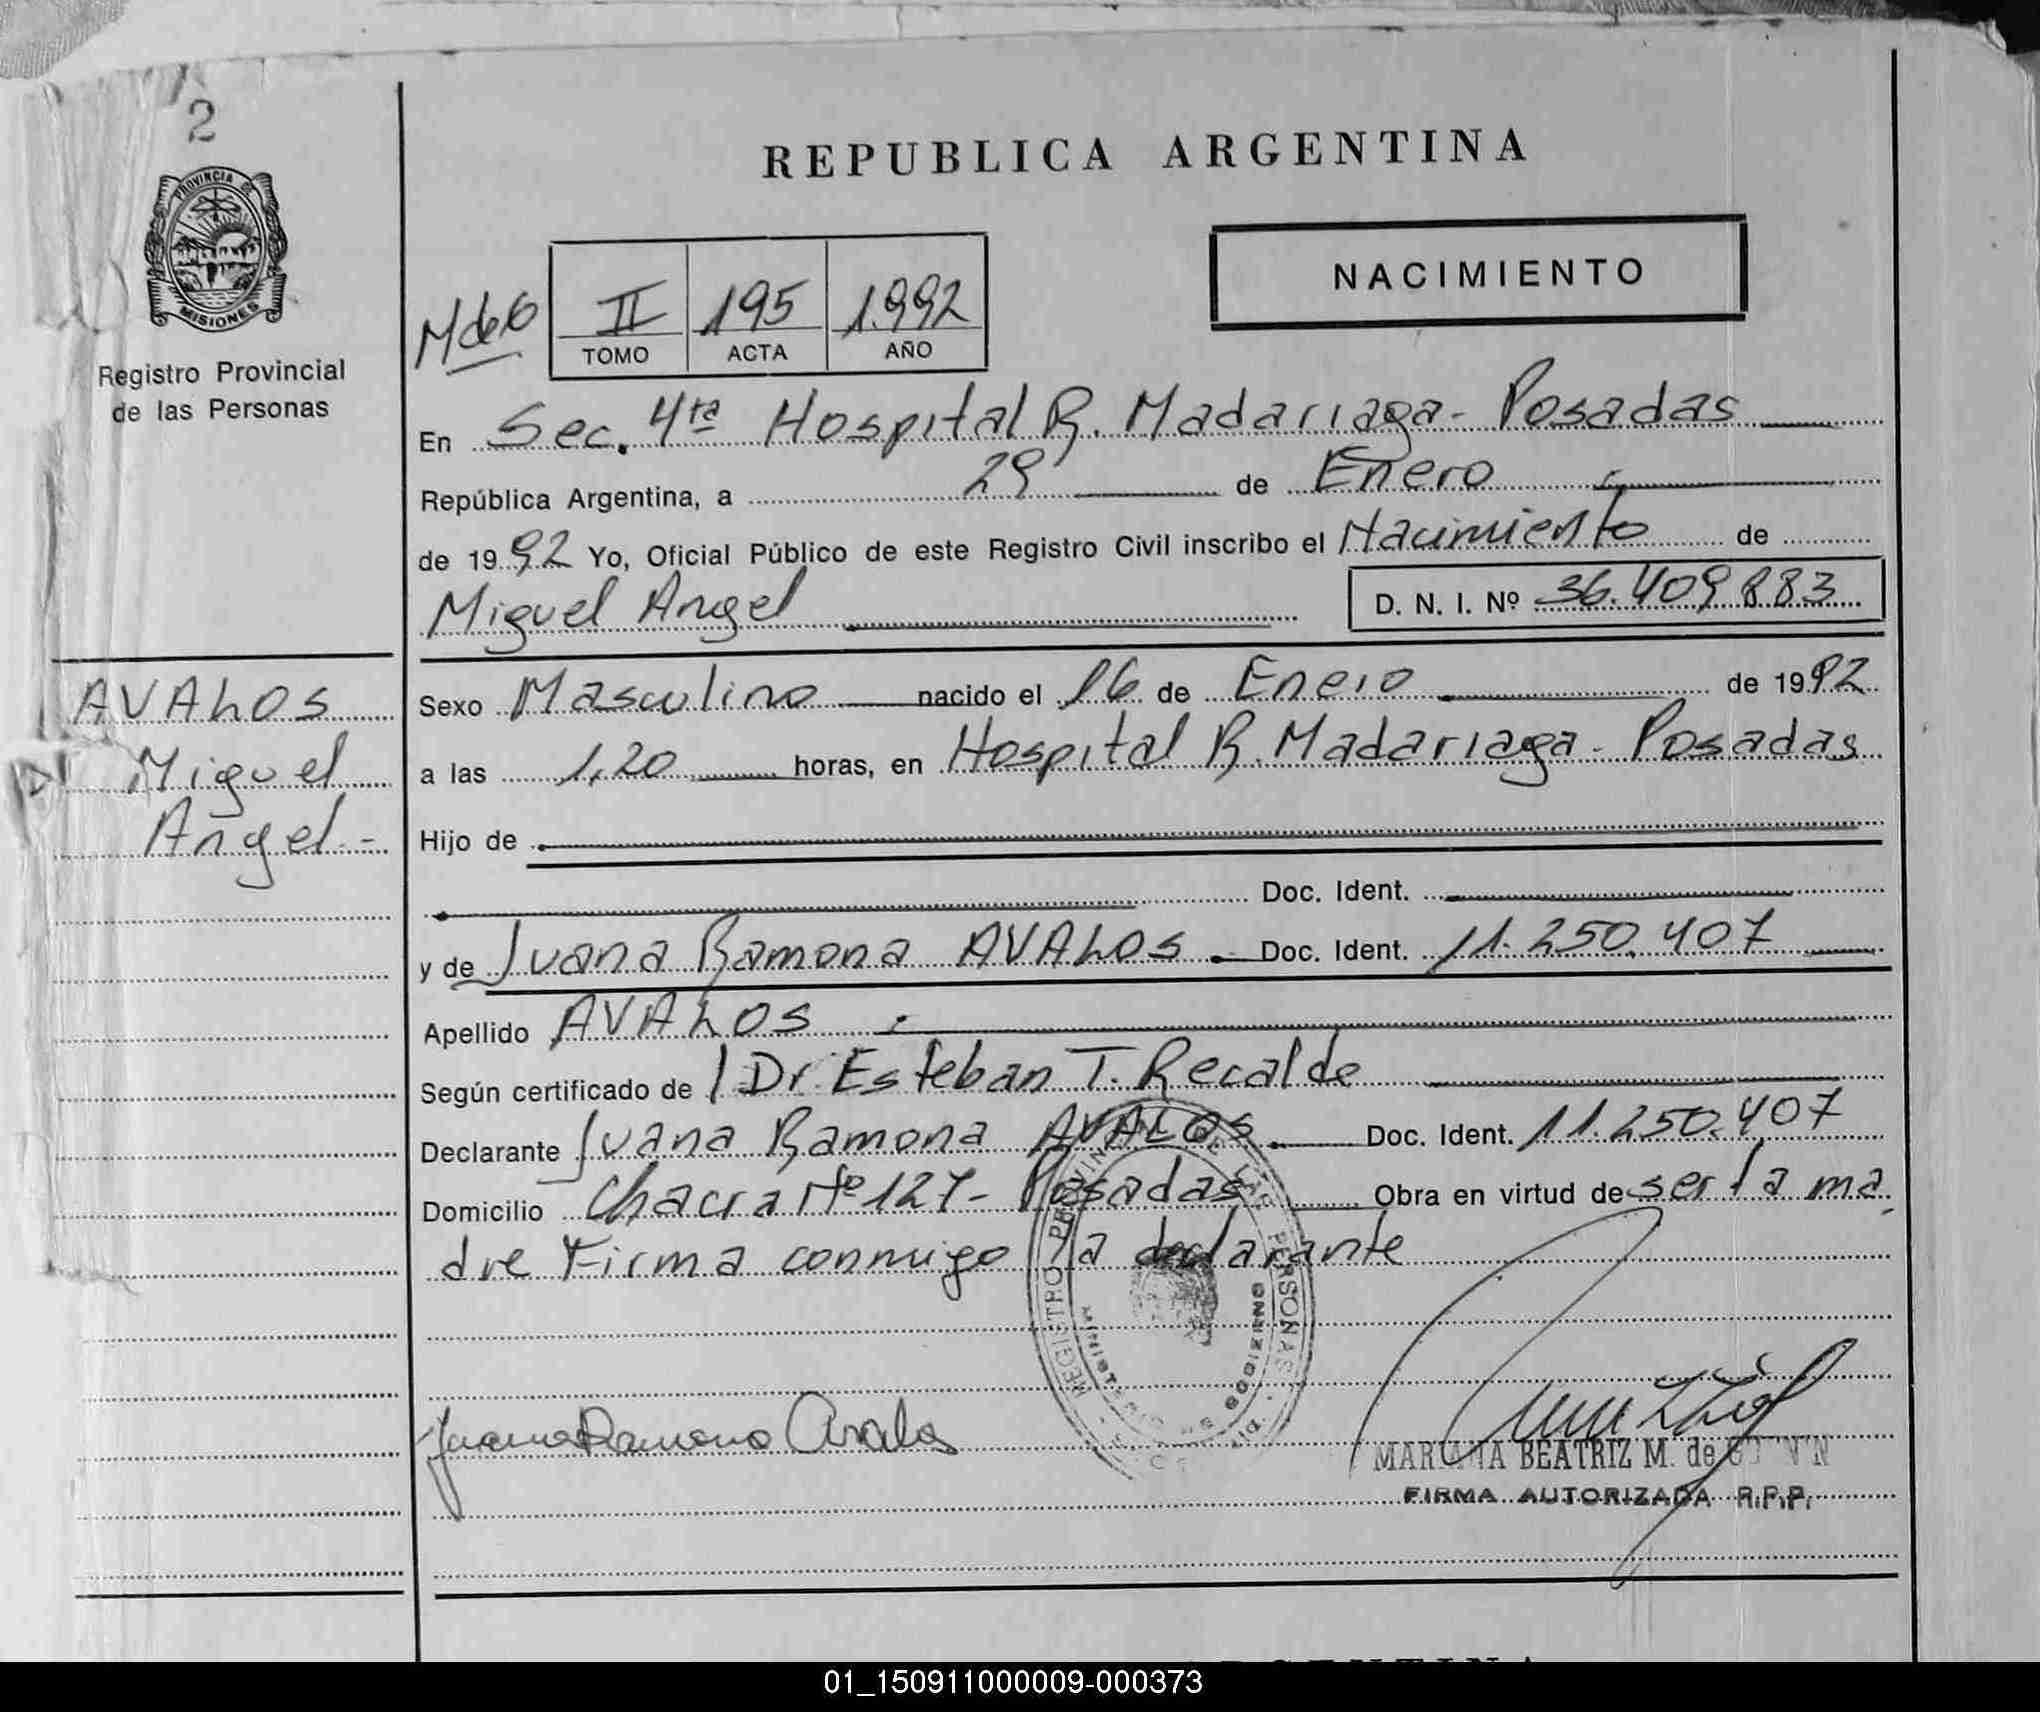 2
PROVINCIA DE
MISIONES
Registro Provincial
de las Personas
REPUBLICA ARGENTINA
NACIMIENTO
II 195 1.992
TOMO ACTA AÑO
En Sec. 4ta Hospital R. Madariaga - Posadas
República Argentina, a 29 de Enero
de 1992 Yo, Oficial Público de este Registro Civil inscribo el Nacimiento de
Miguel Angel D. N. I. Nº 36.409.883
AVALOS
Miguel
Angel.-
Sexo Masculino nacido el 16 de Enero de 1992
a las 1,20 horas, en Hospital R. Madariaga - Posadas
Hijo de
Doc. Ident.
y de Juana Ramona AVALOS. Doc. Ident. 11.250.407
Apellido AVALOS
Según certificado de Dr. Esteban T. Recalde
Declarante Juana Ramona AVALOS Doc. Ident. 11.250.407
Domicilio Chacra Nº 127- Posadas Obra en virtud de ser la ma
dre Firma conmigo la declarante
REGISTRO PROVINCIAL DE LAS PERSONAS
MINISTERIO DE GOBIERNO
Juana Ramona Avalos
BEATRIZ M. de
FIRMA AUTORIZADA R.P.P.
01_150911000009-000373